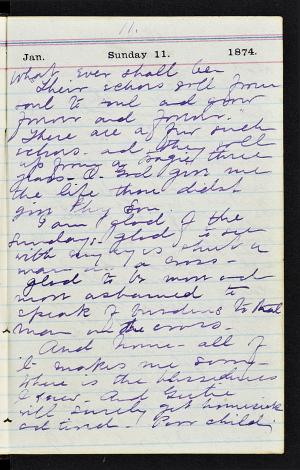 11.
Jan. Sunday 11. 1874.
What ever shall be
"Their echoes roll from
soul to soul and grow
forever and forever."
There are a few such
echoes. and they roll
up from a sage three
God give me
the life thou didst
give Thy Son.
I am glad of the
Sundays. glad to see
with my eyes shut a
man on a cross -
glad to be more and
more ashamed to
speak of burdens to that
man on the cross.
And home - all of
it makes me sorry
Where is the blessedness
I knew - And Gertie
will surely get homesick
and tired - Poor child.